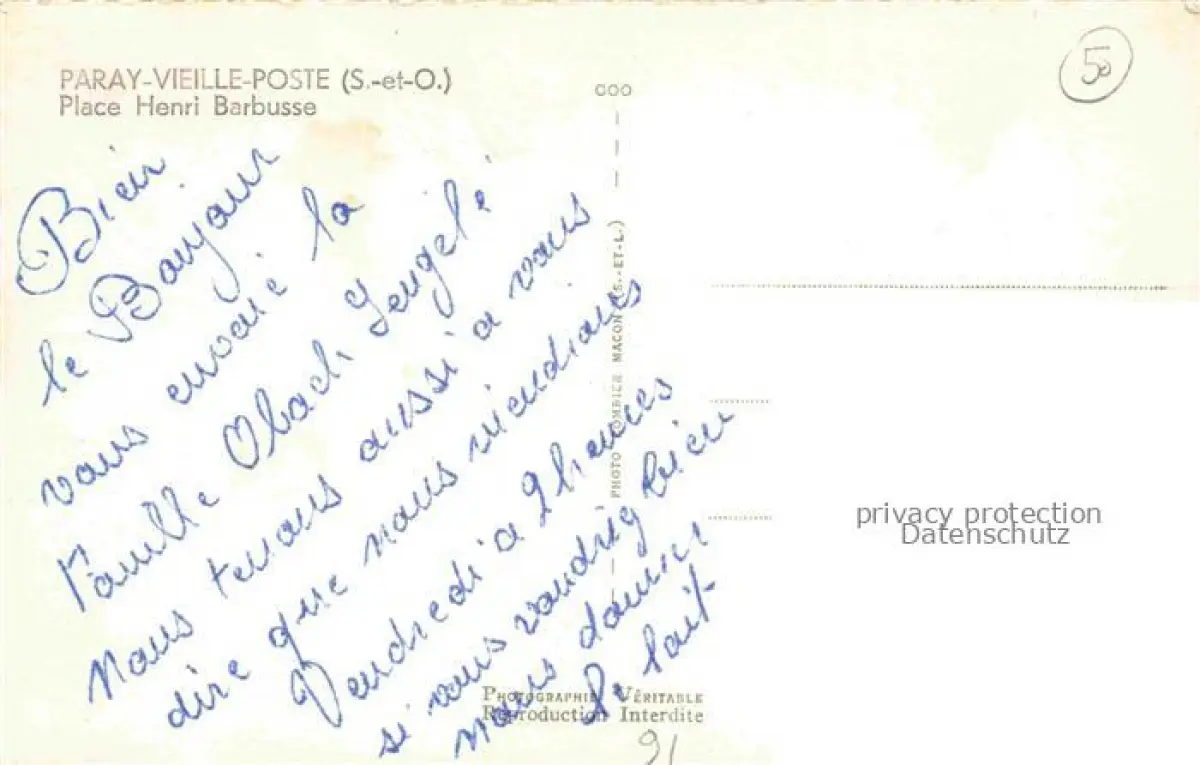 PARAY-VIEILLE-POSTE (S.-et-O.)
Place Henri Barbusse
50
Bien
le Bonjour
vous envoie la
famille Obadi Gengelé
Nous tenons aussi a vous
dire que nous viendrons
Vendredi a 9 heures
si vous voudriez bien
nous donner
le lait
COO
PHOTO COMBIER MACON (S.-ET-L.)
privacy protection
Datenschutz
PHOTOGRAPHIE VÉRITABLE
Reproduction Interdite
91